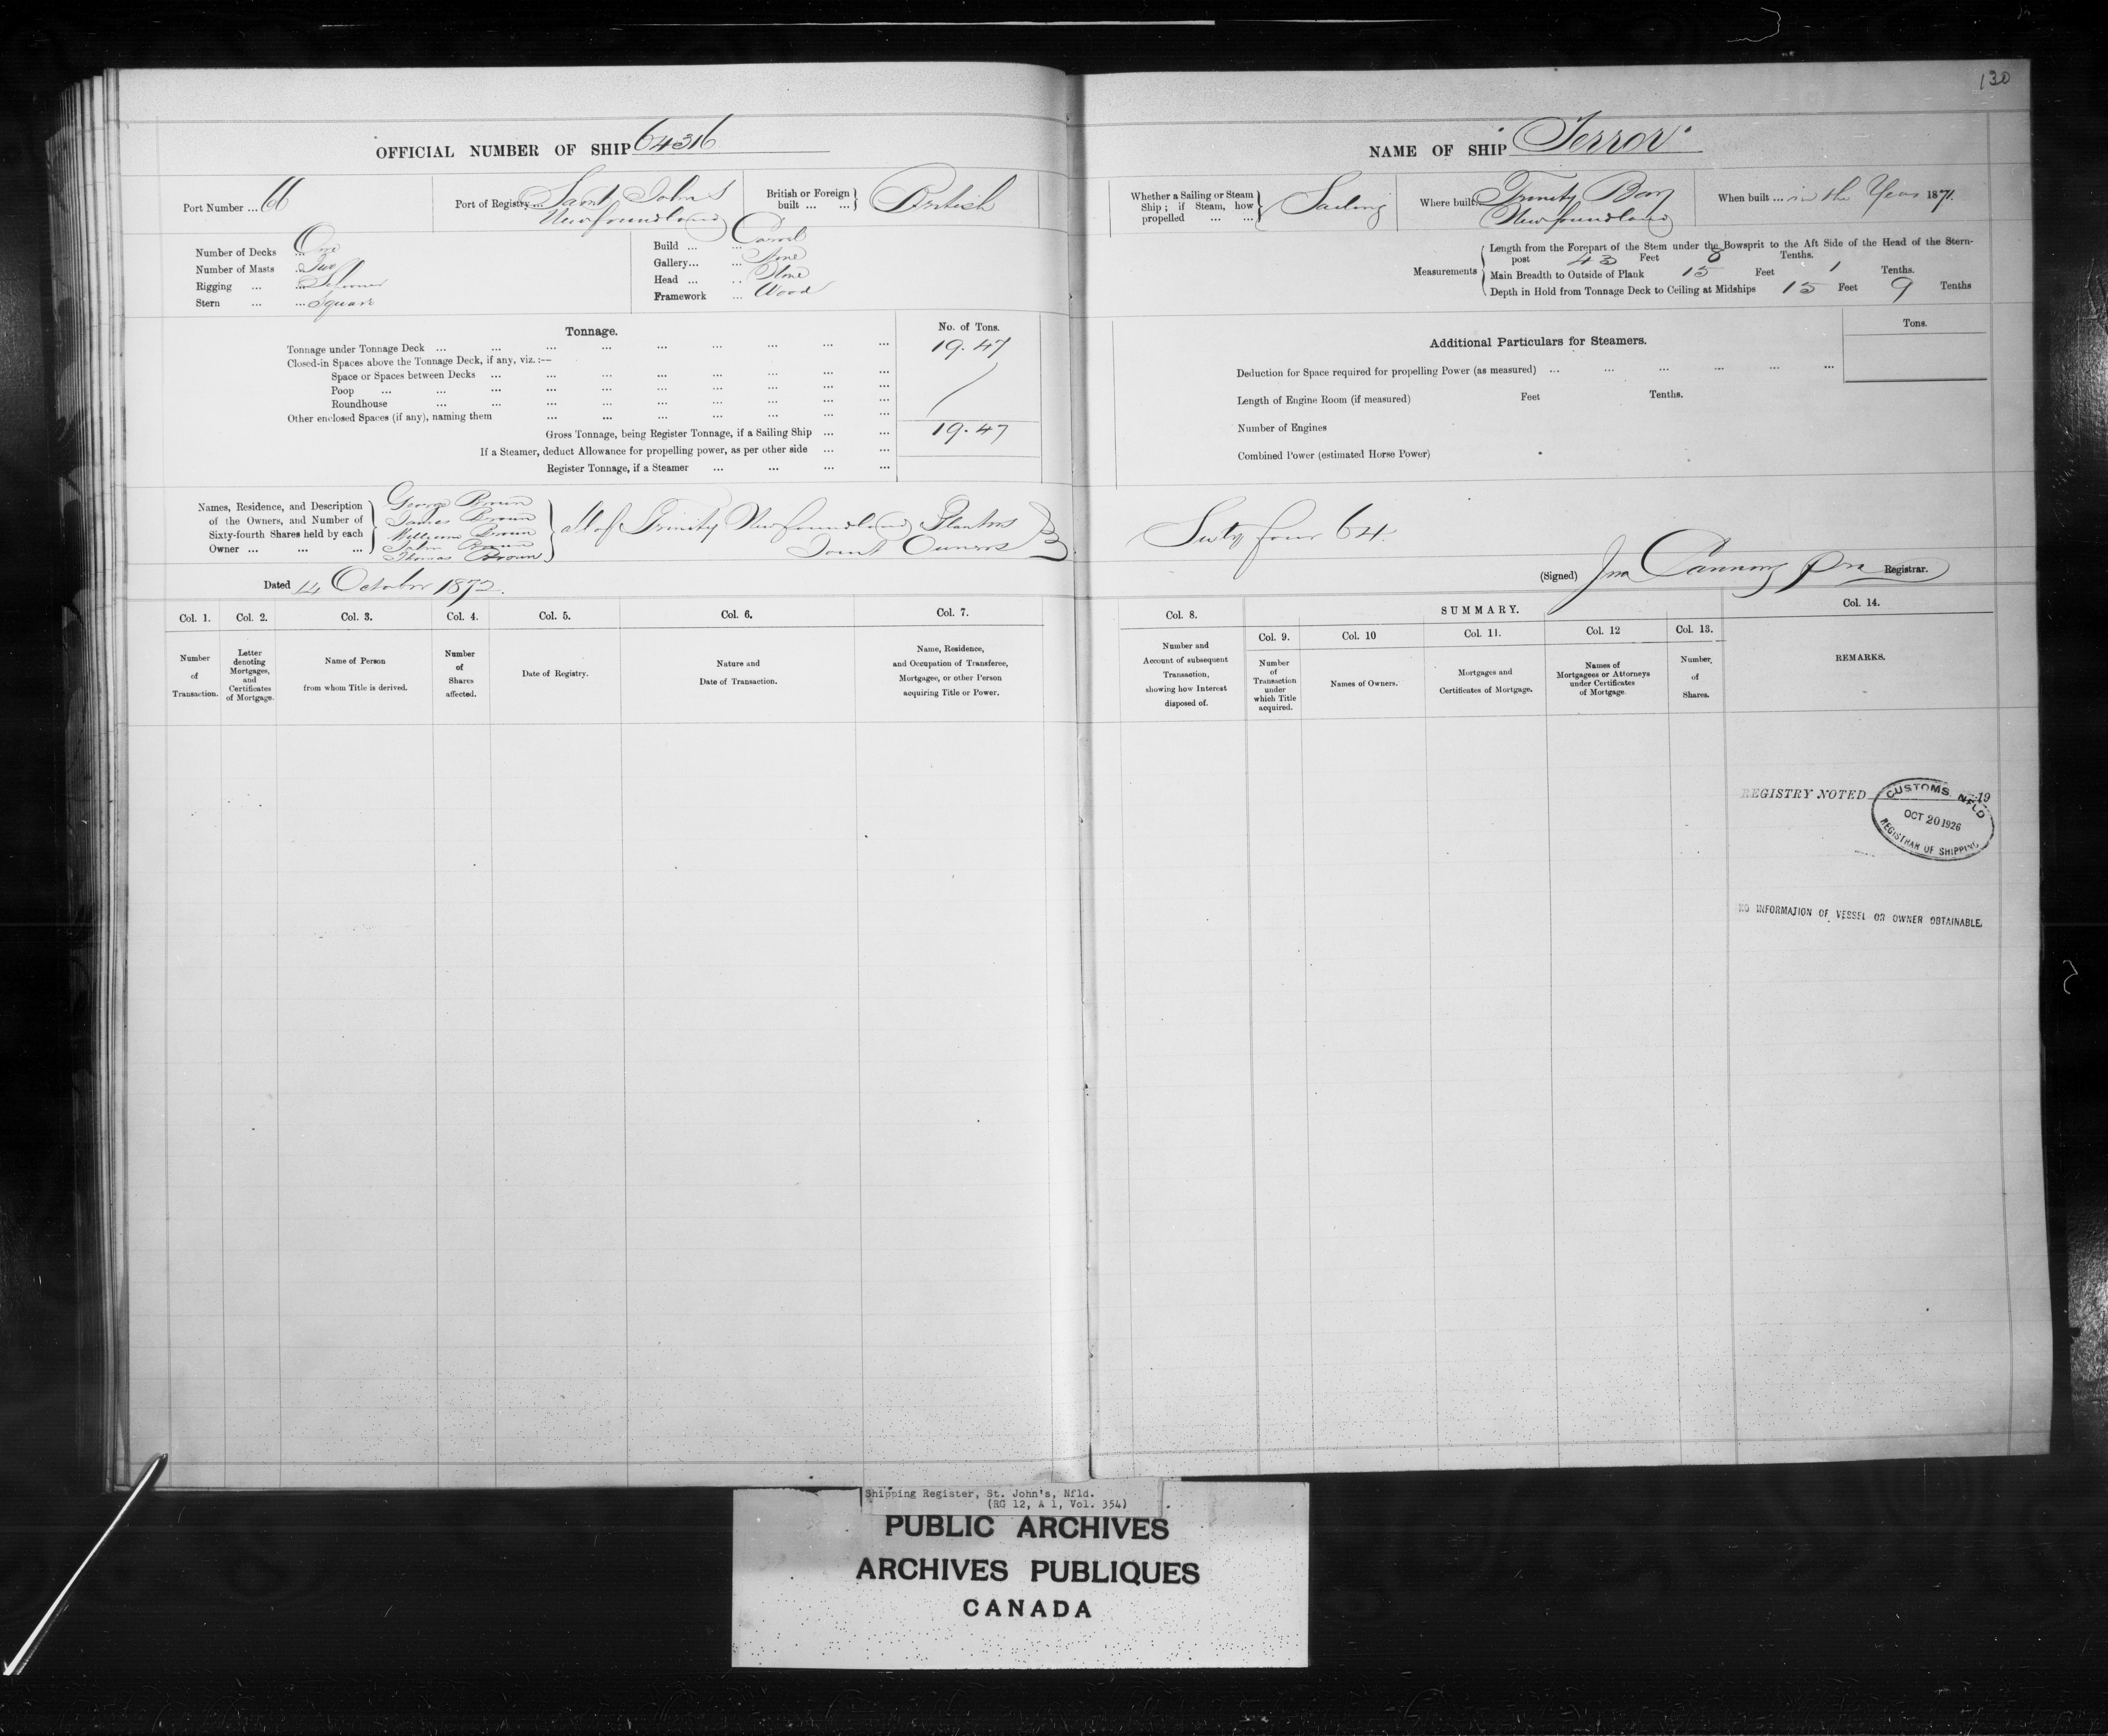 130
OFFICIAL NUMBER OF SHIP 64316
NAME OF SHIP "Terror"
Port Number ... 66
Port of Registry ... Saint John's
Newfoundland
British or Foreign built ... ... British
Whether a Sailing or Steam Ship; if Steam, how propelled ... ... Sailing
Where built ... Trinity Bay
Newfoundland
When built ... in the Year 1871.
Number of Decks ... One
Number of Masts ... Two
Rigging ... ... Schooner
Stern ... ... Square
Build ... ... Carvel
Gallery ... ... None
Head ... ... None
Framework ... Wood
Measurements
Length from the Forepart of the Stem under the Bowsprit to the Aft Side of the Head of the Stern-
post 43 Feet 8 Tenths.
Main Breadth to Outside of Plank 15 Feet 1 Tenths.
Depth in Hold from Tonnage Deck to Ceiling at Midships 15 Feet 9 Tenths
Tonnage.
No. of Tons.
Tonnage under Tonnage Deck ... ... ... ... ... ... ... ... 19.47
Closed-in Spaces above the Tonnage Deck, if any, viz. :—
Space or Spaces between Decks ... ... ... ... ... ... ... ...
Poop ... ... ... ... ... ... ... ... ...
Roundhouse ... ... ... ... ... ... ... ...
Other enclosed Spaces (if any), naming them ... ... ... ... ... ... ...
Gross Tonnage, being Register Tonnage, if a Sailing Ship ... ... 19.47
If a Steamer, deduct Allowance for propelling power, as per other side ... ...
Register Tonnage, if a Steamer ... ... ... ...
Additional Particulars for Steamers.
Tons.
Deduction for Space required for propelling Power (as measured) ... ... ... ... ... ...
Length of Engine Room (if measured) Feet Tenths.
Number of Engines
Combined Power (estimated Horse Power)
Names, Residence, and Description
of the Owners, and Number of
Sixty-fourth Shares held by each
Owner ... ... ...
George Brown
James Brown
William Brown
John Brown
Thomas Brown
All of Trinity Newfoundland Planters
Joint Owners
Sixty four 64
Dated 14 October 1872.
(Signed) Jno Canning Pro Registrar.
Col. 1.
Number
of
Transaction.
Col. 2.
Letter
denoting
Mortgages,
and
Certificates
of Mortgage.
Col. 3.
Name of Person
from whom Title is derived.
Col. 4.
Number
of
Shares
affected.
Col. 5.
Date of Registry.
Col. 6.
Nature and
Date of Transaction.
Col. 7.
Name, Residence,
and Occupation of Transferee,
Mortgagee, or other Person
acquiring Title or Power.
Col. 8.
Number and
Account of subsequent
Transaction,
showing how Interest
disposed of.
SUMMARY.
Col. 9.
Number
of
Transaction
under
which Title
acquired.
Col. 10
Names of Owners.
Col. 11.
Mortgages and
Certificates of Mortgage.
Col. 12
Names of
Mortgagees or Attorneys
under Certificates
of Mortgage.
Col. 13.
Number
of
Shares.
Col. 14.
REMARKS.
REGISTRY NOTED 19
CUSTOMS NFLD
OCT 20 1926
REGISTRAR OF SHIPPING
NO INFORMATION OF VESSEL OR OWNER OBTAINABLE.
Shipping Register, St. John's, Nfld.
(RG 12, A 1, Vol. 354)
PUBLIC ARCHIVES
ARCHIVES PUBLIQUES
CANADA